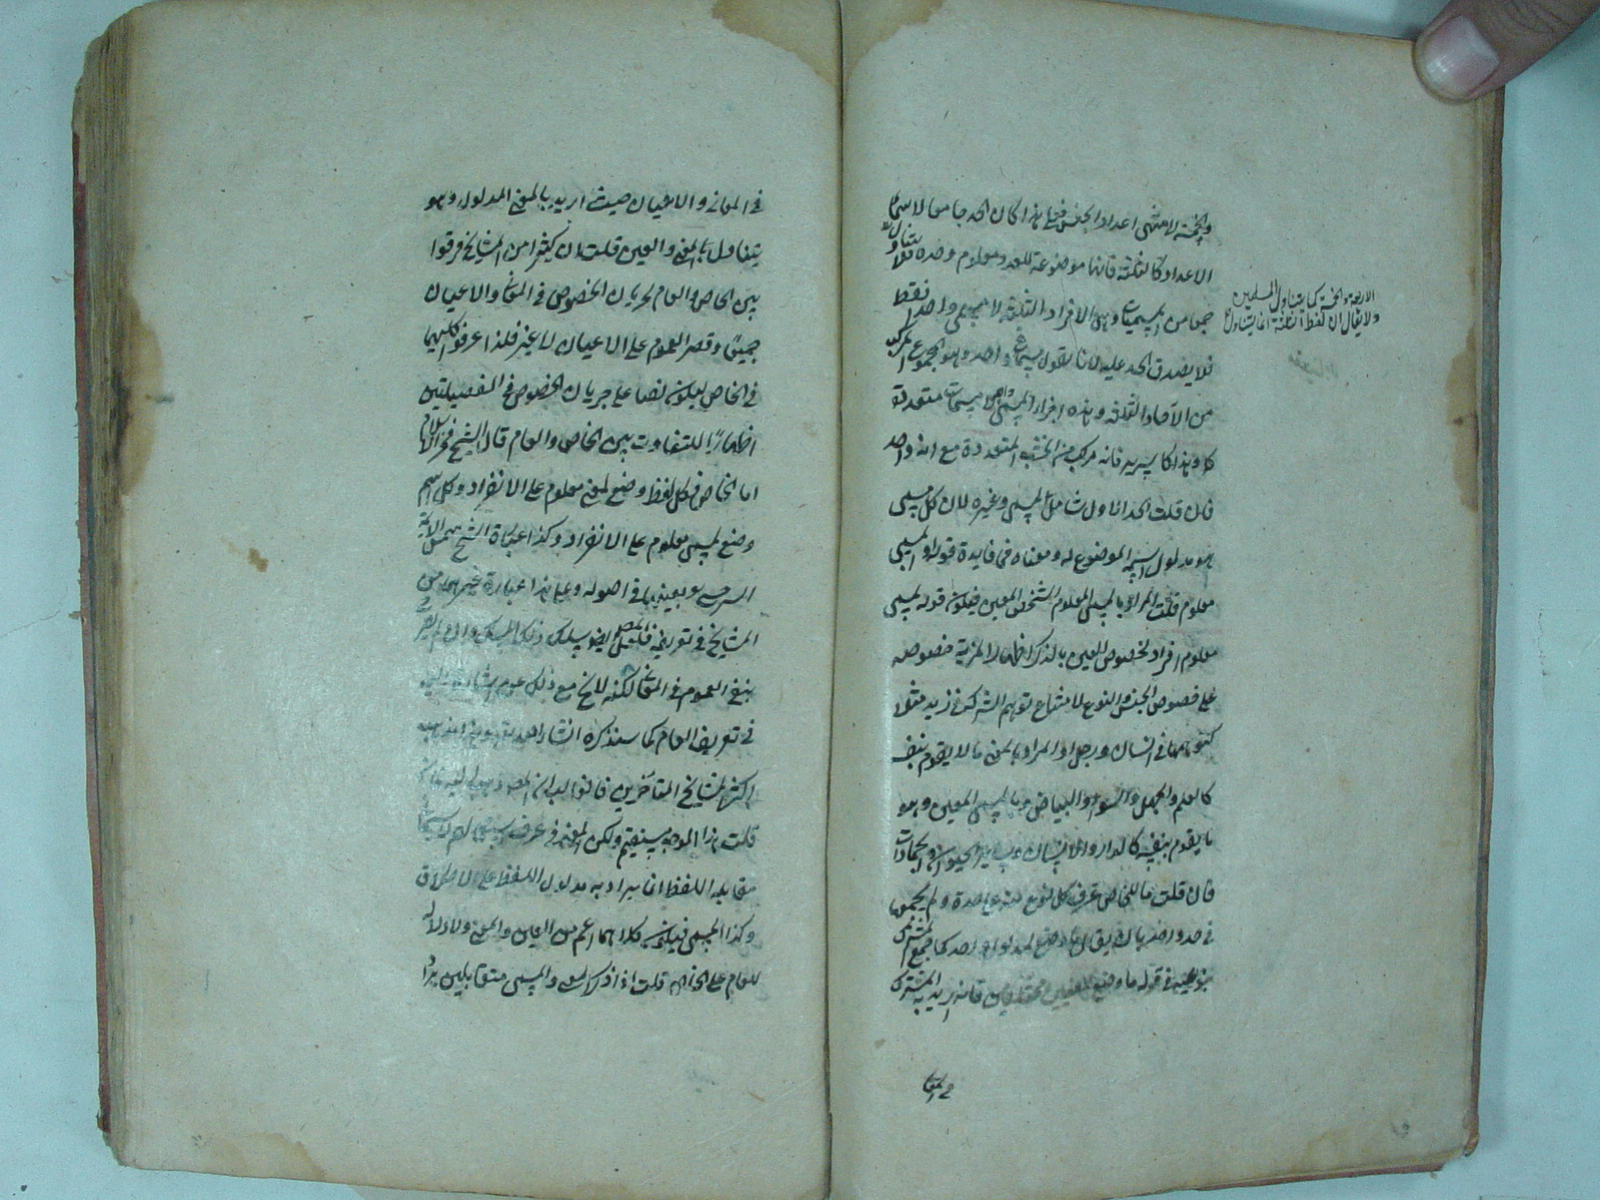 والخمسة لا منتهى اعداد الجنس فعلى هذا كان الحد جامعا لاسماء
الاعداد كالثلثة فانها موضوعة للعدد معلوم وحده فلا يتناول
جمعا من المسميات وهى الافراد الثلثة لا مسمى واحدا فقط
فلا يصدق الحد عليه لانا نقول مسماه واحد وهو المجموع المركب
من الآحاد الثلثة وهذه اجزاء المسمى الواحد لا مسميات متعددة
كا وهذا كالسرير فانه مركب من الخشب المتعددة مع انه واحد
فان قلت الحد الاول شامل المسمى وغيره لان كل مسمى
هو مدلول اسمه الموضوع له ومعناه فما فايدة قوله والمسمى
معلوم قلت المراد بالمسمى المعلوم الشخص المعين فيكون قوله لمسمى
معلوم افراد لخصوص العين بالذكر اظهارا لمزية خصوصه
على خصوص الجنس والنوع لامتناع توهم الشركة فى زيد مثلا
كتوهمها فى انسان ورجل او المراد بالمعنى ما لا يقوم بنفسه
كالعلم والجهل والسواد والبياض وبالمسمى المعين وهو
ما يقوم بنفسه كالدار والانسان وساير الحيوان والجمادات
فان قلت ما للخاص عرف كل نوع منه على حدة ولم يجمع
فى حد واحد بان يقال ما وضع لمدلول واحد كما جمع المشترك
بنوعيه فى قوله ما وضع لمعنيين مختلفين فانه اريد به المشترك
فى المعا
الاربعة والخمسة كما يتناول المسلمين
ولا يقال ان لفظ الثلثة انما يتناول
فى المعانى والاعيان حيث اريد بالمعنى المدلول وهو
يتناول بالمعنى والعين قلت ان كثيرا من المشايخ فرقوا
بين الخاص والعام لجريان الخصوص فى المعانى والاعيان
جميعا وقصر العموم على الاعيان لا غير فلذا عرفوا كليهما
فى الخاص ليكون نصا على جريان الخصوص فى الفصيلتين
اظهارا للتفاوت بين الخاص والعام قال الشيخ فخر الاسلام
اما الخاص فكل لفظ وضع لمعنى معلوم على الانفراد وكل اسم
وضع لمسمى معلوم على الانفراد وكذا عبارة الشيخ شمس الائمة
السرخسى بعينها فى اصوله وعلى هذا عبارة غيرهما من
المشايخ فى تعريفه فلعل المصنف ايضا سلك ذلك المسلك وان لم يقر
بنفى العموم فى المعانى لكنه لاح مع ذلك
فى تعريف العام كما سنذكره انشاء الله
اكثر المشايخ المتاخرين فالواجب ان
قلت هذا الوجه مستقيم ولكن المعنى فى عرف
مقابلة اللفظ انما يراد به مدلول اللفظ على الاطلاق
وكذا المسمى فيكون كلاهما اعم من العين والمعنى ولا دلالة
للعام على الخاص قلت اذا ذكر المعنى والمسمى متقابلين يراد